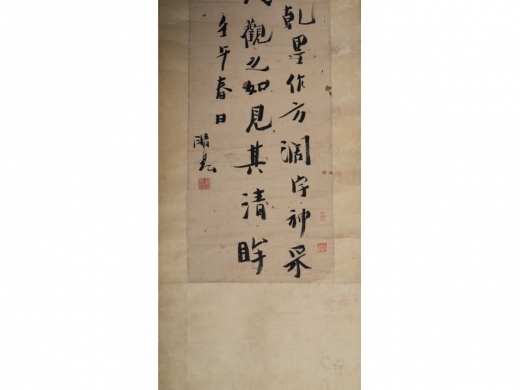 乾墨作方濶字神采
觀之如見其清眸
壬午春日